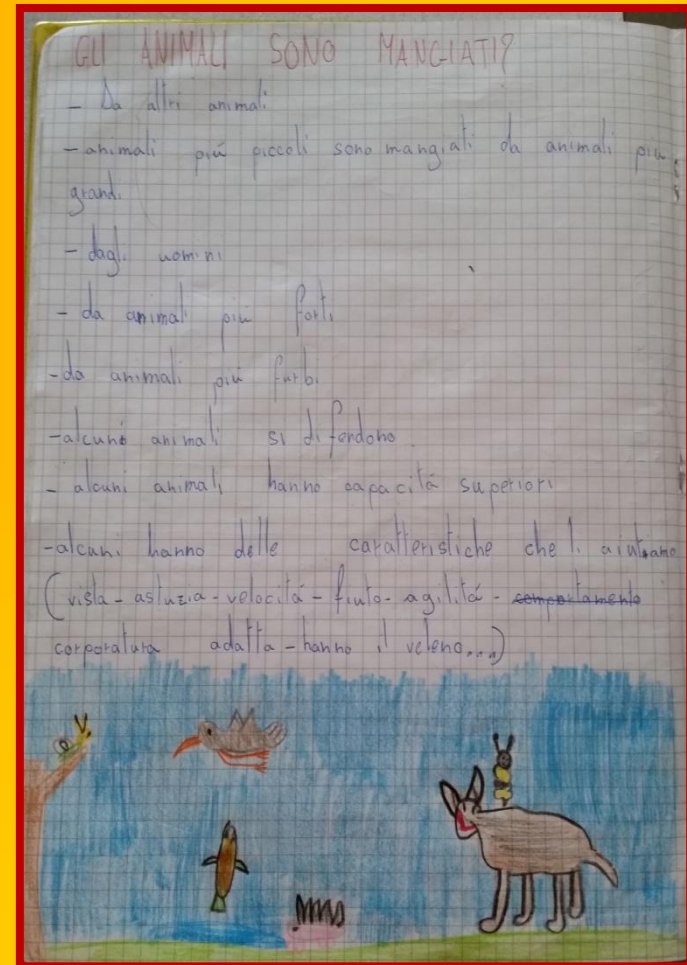 GLI ANIMALI SONO MANGIATI?
- Da altri animali
- animali più piccoli sono mangiati da animali più
grandi
- dagli uomini
- da animali più forti
- da animali più furbi
- alcuni animali si difendono.
- alcuni animali hanno capacitá superiori
- alcuni hanno delle caratteristiche che li aiutano
(vista - astuzia - velocitá - fiuto - agilitá - comportamento
corporatura adatta - hanno il veleno...)